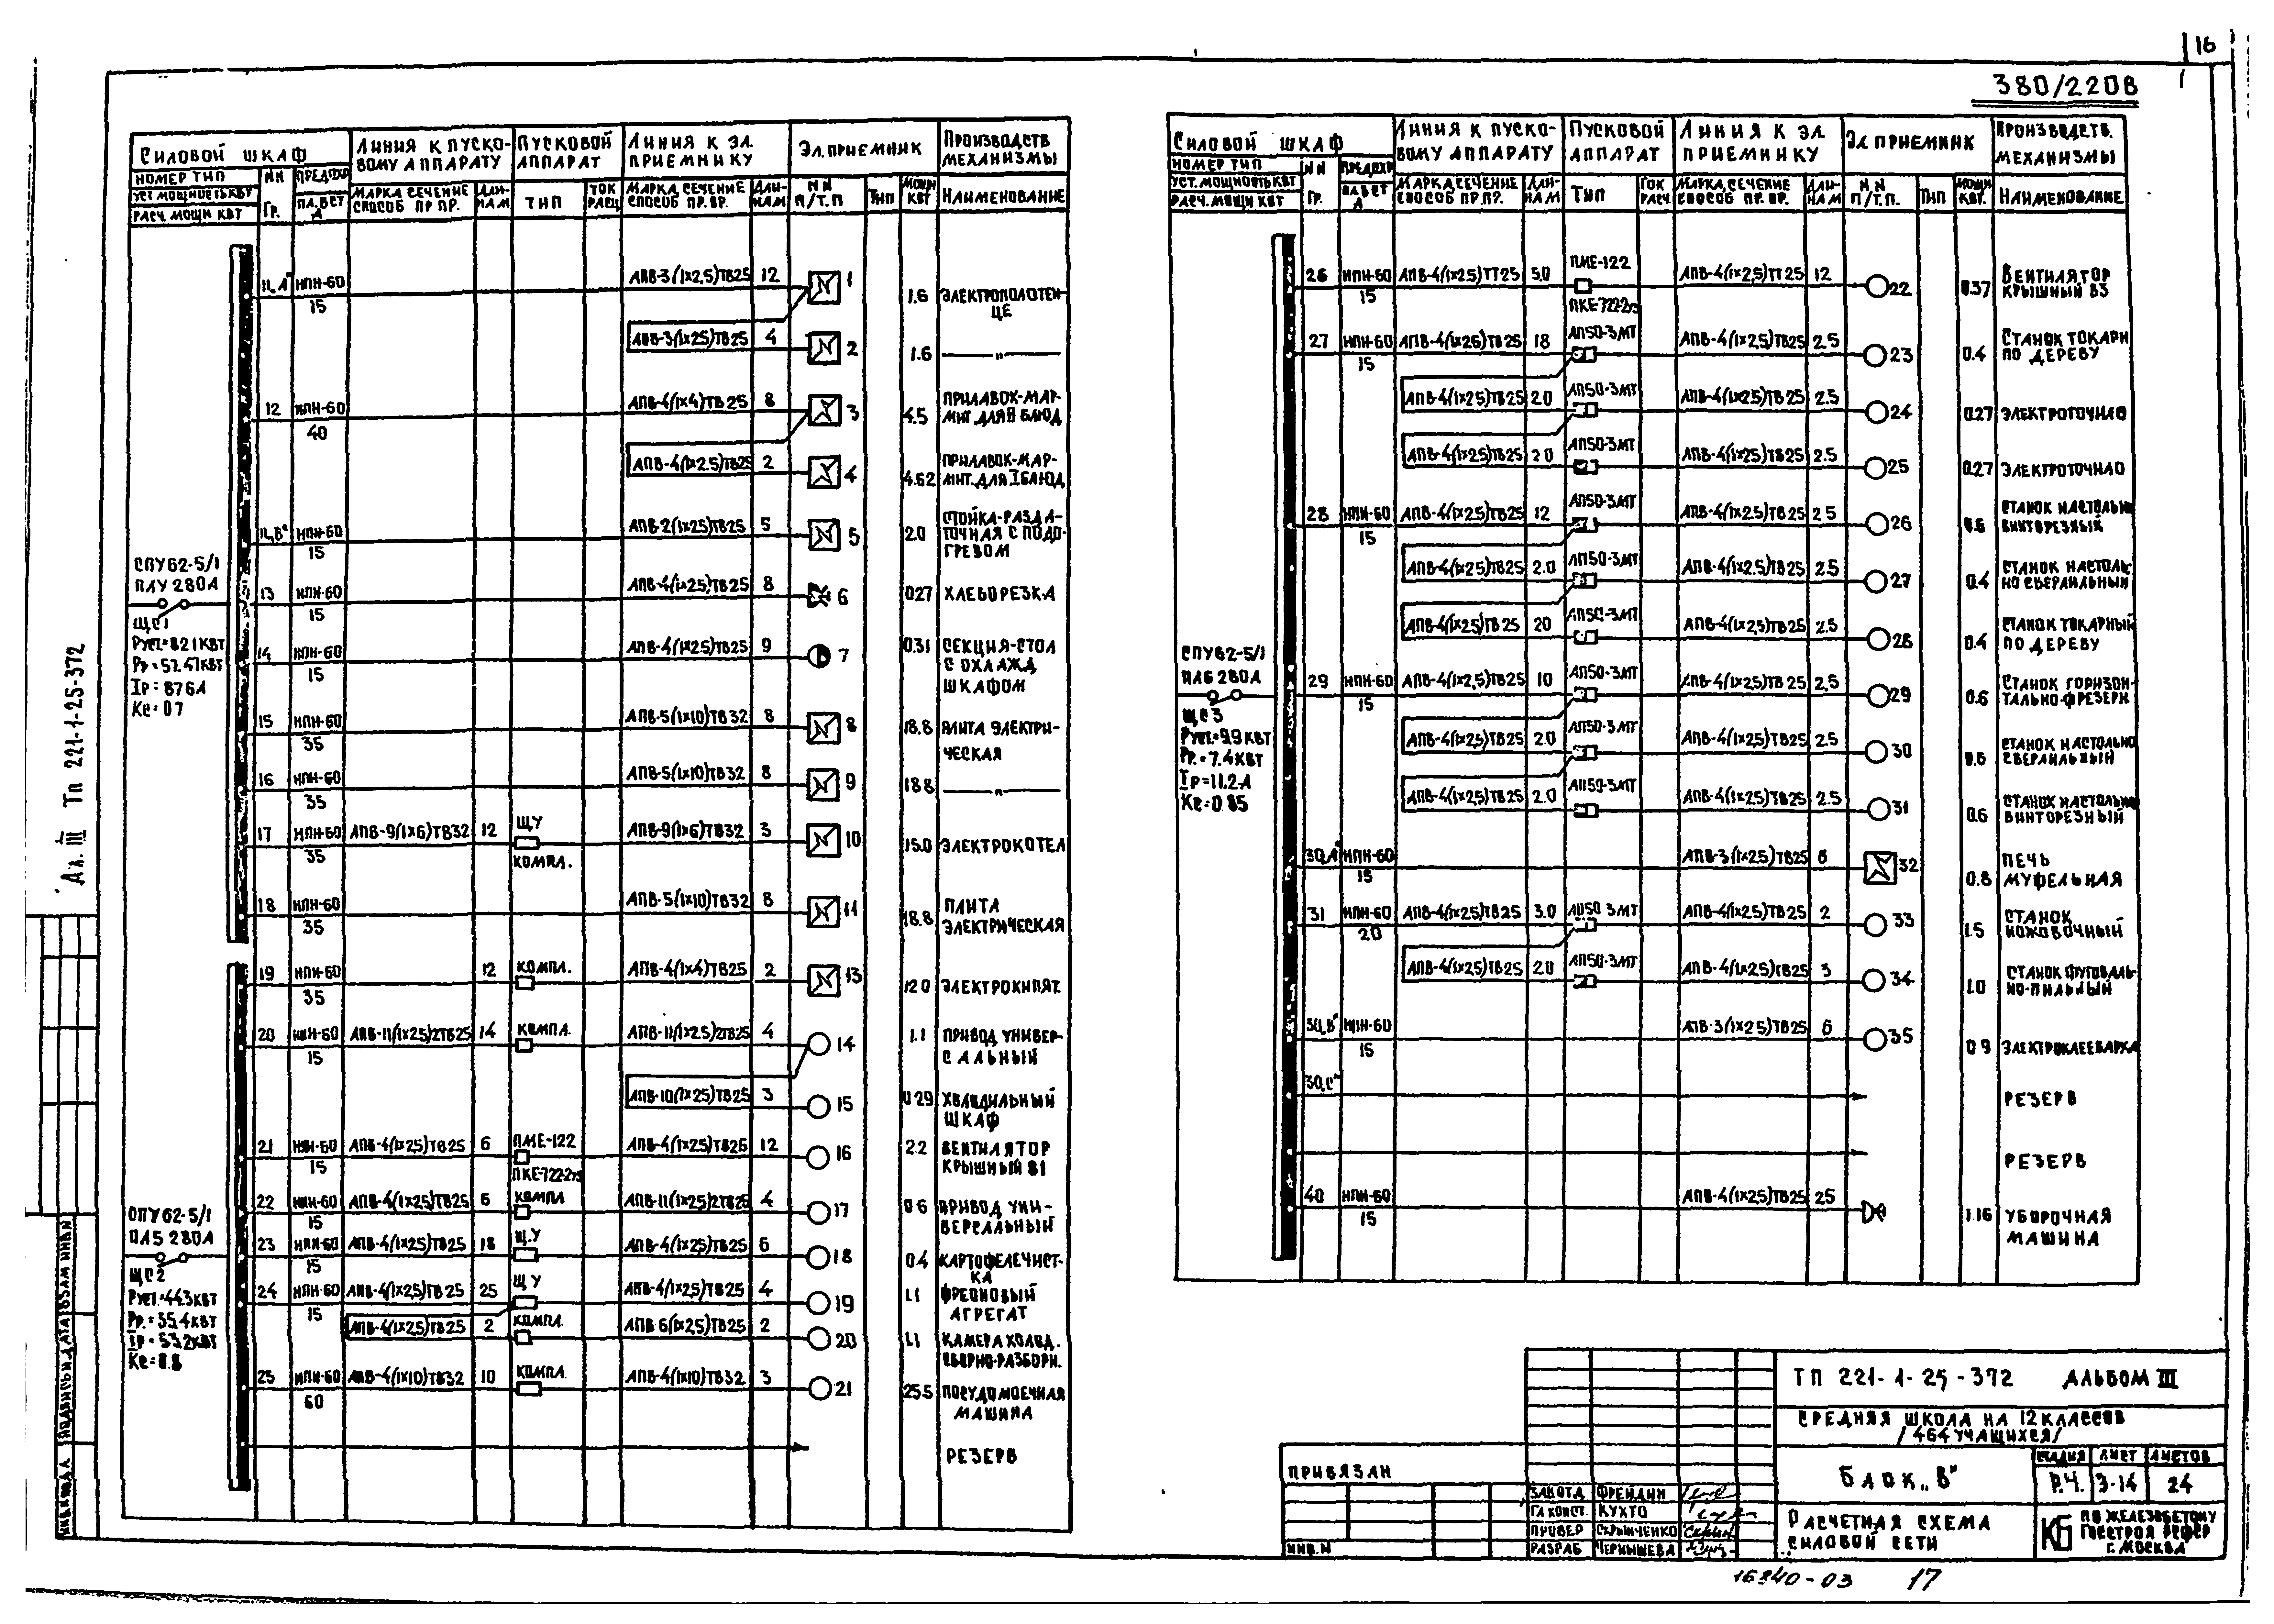 16
380/220В
Силовой шкаф
Линия к пуско-
вому аппарату
Пусковой
аппарат
Линия к эл.
приемнику
Эл. приемник
Производств
механизмы
Номер тип
Уст мощность квт
Расч. мощн квт
NN
Гр.
Предохр
Пл. вст
А
Марка сечение
способ пр пр.
Дли-
на м
Тип
Ток
расц
Марка, сечение
способ пр. пр.
Дли-
на м
NN
п/т.п
Тип
Мощн
квт
Наименование
СПУ62-5/1
ПЛУ 280А
ЩС1
Руст.=82.1квт
Рр=57.47квт
Iр=87.6А
Кс=0.7
11„А" НПН-60 15 АПВ-3(1х2,5)ТВ25 12 1 1.6 Электрополотен-
це
АПВ-3(1х2.5)ТВ25 4 2 1.6 —„—
12 НПН-60 40 АПВ-4(1х4)ТВ25 8 3 4.5 Прилавок-мар-
мит. для II блюд
АПВ-4(1х2.5)ТВ25 2 4 4.62 Прилавок-мар-
мит. для I блюд
11„В" НПН-60 15 АПВ-2(1х2.5)ТВ25 5 5 2.0 Стойка-разда-
точная с подо-
гревом
13 НПН-60 15 АПВ-4(1х2.5)ТВ25 8 6 0.27 Хлеборезка
14 НПН-60 15 АПВ-4(1х2.5)ТВ25 9 7 0.31 Секция-стол
с охлажд
шкафом
15 НПН-60 35 АПВ-5(1х10)ТВ32 8 8 18.8 Плита электри-
ческая
16 НПН-60 35 АПВ-5(1х10)ТВ32 8 9 18.8 —„—
17 НПН-60 35 АПВ-9(1х6)ТВ32 12 ЩУ компл. АПВ-9(1х6)ТВ32 3 10 15.0 Электрокотел
18 НПН-60 35 АПВ-5(1х10)ТВ32 8 11 18.8 Плита
электрическая
19 НПН-60 35 12 компл. АПВ-4(1х4)ТВ25 2 13 12.0 Электрокипят.
20 НПН-60 15 АПВ-11(1х2.5)2ТВ25 14 компл. АПВ-11(1х2.5)2ТВ25 4 14 1.1 Привод универ-
сальный
АПВ-10(1х2.5)ТВ25 3 15 0.29 Холодильный
шкаф
21 НПН-60 15 АПВ-4(1х2.5)ТВ25 6 ПМЕ-122 ПКЕ-722-2у3 АПВ-4(1х2.5)ТВ25 12 16 2.2 Вентилятор
крышный В1
СПУ62-5/1
ПЛ5 280А
ЩС2
Руст.=44.3квт
Рр.=35.4квт
Iр=53.2квт
Кс=0.8
22 НПН-60 15 АПВ-4(1х2.5)ТВ25 6 компл АПВ-11(1х2.5)2ТВ25 4 17 0.6 Привод уни-
версальный
23 НПН-60 15 АПВ-4(1х2.5)ТВ25 18 Щ.У АПВ-4(1х2.5)ТВ25 6 18 0.4 Картофелечист-
ка
24 НПН-60 15 АПВ-4(1х2.5)ТВ25 25 ЩУ АПВ-4(1х2.5)ТВ25 4 19 1.1 Фреоновый
агрегат
АПВ-4(1х2.5)ТВ25 2 компл. АПВ-6(1х2.5)ТВ25 2 20 1.1 Камера холод.
сборно-разборн.
25 НПН-60 60 АПВ-4(1х10)ТВ32 10 компл. АПВ-4(1х10)ТВ32 3 21 25.5 Посудомоечная
машина
Резерв
Силовой шкаф
Линия к пуско-
вому аппарату
Пусковой
аппарат
Линия к эл.
приемнику
Эл приемник
Производств.
механизмы
Номер тип
Уст. мощность квт
Расч. мощн квт
NN
Гр.
Предохр
Пл. вст
А
Марка, сечение
способ пр. пр.
Дли-
на м
Тип
Ток
расч.
Марка, сечение
способ пр. пр.
Дли-
на м
N.N
п/т.п.
Тип
Мощн
квт.
Наименование
26 НПН-60 15 АПВ-4(1х2.5)ТТ25 5.0 ПМЕ-122 ПКЕ-722-2у3 АПВ-4(1х2,5)ТТ25 12 22 0.37 Вентилятор
крышный В3
27 НПН-60 15 АПВ-4(1х2.5)ТВ25 18 АП50-3МТ АПВ-4(1х2,5)ТВ25 2.5 23 0.4 Станок токарн
по дереву
АПВ-4(1х2.5)ТВ25 2.0 АП50-3МТ АПВ-4(1х2.5)ТВ25 2.5 24 0.27 Электроточило
АПВ-4(1х2.5)ТВ25 2.0 АП50-3МТ АПВ-4(1х2.5)ТВ25 2.5 25 0.27 Электроточило
28 НПН-60 15 АПВ-4(1х2.5)ТВ25 12 АП50-3МТ АПВ-4(1х2.5)ТВ25 2.5 26 0.6 Станок настольн
винторезный
АПВ-4(1х2.5)ТВ25 2.0 АП50-3МТ АПВ-4(1х2.5)ТВ25 2.5 27 0.4 Станок настоль
но сверлильный
АПВ-4(1х2.5)ТВ25 2.0 АП50-3МТ АПВ-4(1х2.5)ТВ25 2.5 28 0.4 Станок токарный
по дереву
СПУ62-5/1
ПЛ6 280А
ЩС3
Руст.=9.9квт
Рр.=7.4квт
Iр=11.2А
Кс=0.85
29 НПН-60 15 АПВ-4(1х2,5)ТВ25 10 АП50-3МТ АПВ-4(1х2,5)ТВ25 2,5 29 0.6 Станок горизон-
тально-фрезерн
АПВ-4(1х2.5)ТВ25 2.0 АП50-3МТ АПВ-4(1х2.5)ТВ25 2.5 30 0.6 Станок настольно
сверлильный
АПВ-4(1х2.5)ТВ25 2.0 АП50-3МТ АПВ-4(1х2.5)ТВ25 2.5 31 0.6 Станок настольно
винторезный
30„А" НПН-60 15 АПВ-3(1х2.5)ТВ25 6 32 0.8 Печь
муфельная
31 НПН-60 20 АПВ-4(1х2.5)ТВ25 3.0 АП50 3МТ АПВ-4(1х2.5)ТВ25 2 33 1.5 Станок
ножовочный
АПВ-4(1х2.5)ТВ25 2.0 АП50-3МТ АПВ-4(1х2.5)ТВ25 3 34 1.0 Станок фуговаль-
но-пильный
30„В" НПН-60 15 АПВ-3(1х2.5)ТВ25 6 35 0.9 Электроклееварка
30„С"
Резерв
Резерв
40 НПН-60 15 АПВ-4(1х2.5)ТВ25 25 1.16 Уборочная
машина
Ал. III Тп 221-1-25-372
Инв. N подл Подпись и дата Взам инв N
Привязан
Инв. N
Зав отд Фрейдин
Гл конст. Кухто
Провер Скрынченко
Разраб Чернышева
ТП 221-1-25-372 Альбом III
Средняя школа на 12 классов
/464 учащихся/
Блок „В"
Стадия Лист Листов
Р.Ч. Э-14 24
Расчетная схема
силовой сети
КБ по железобетону
Госстроя РСФСР
г. Москва
16340-03 17